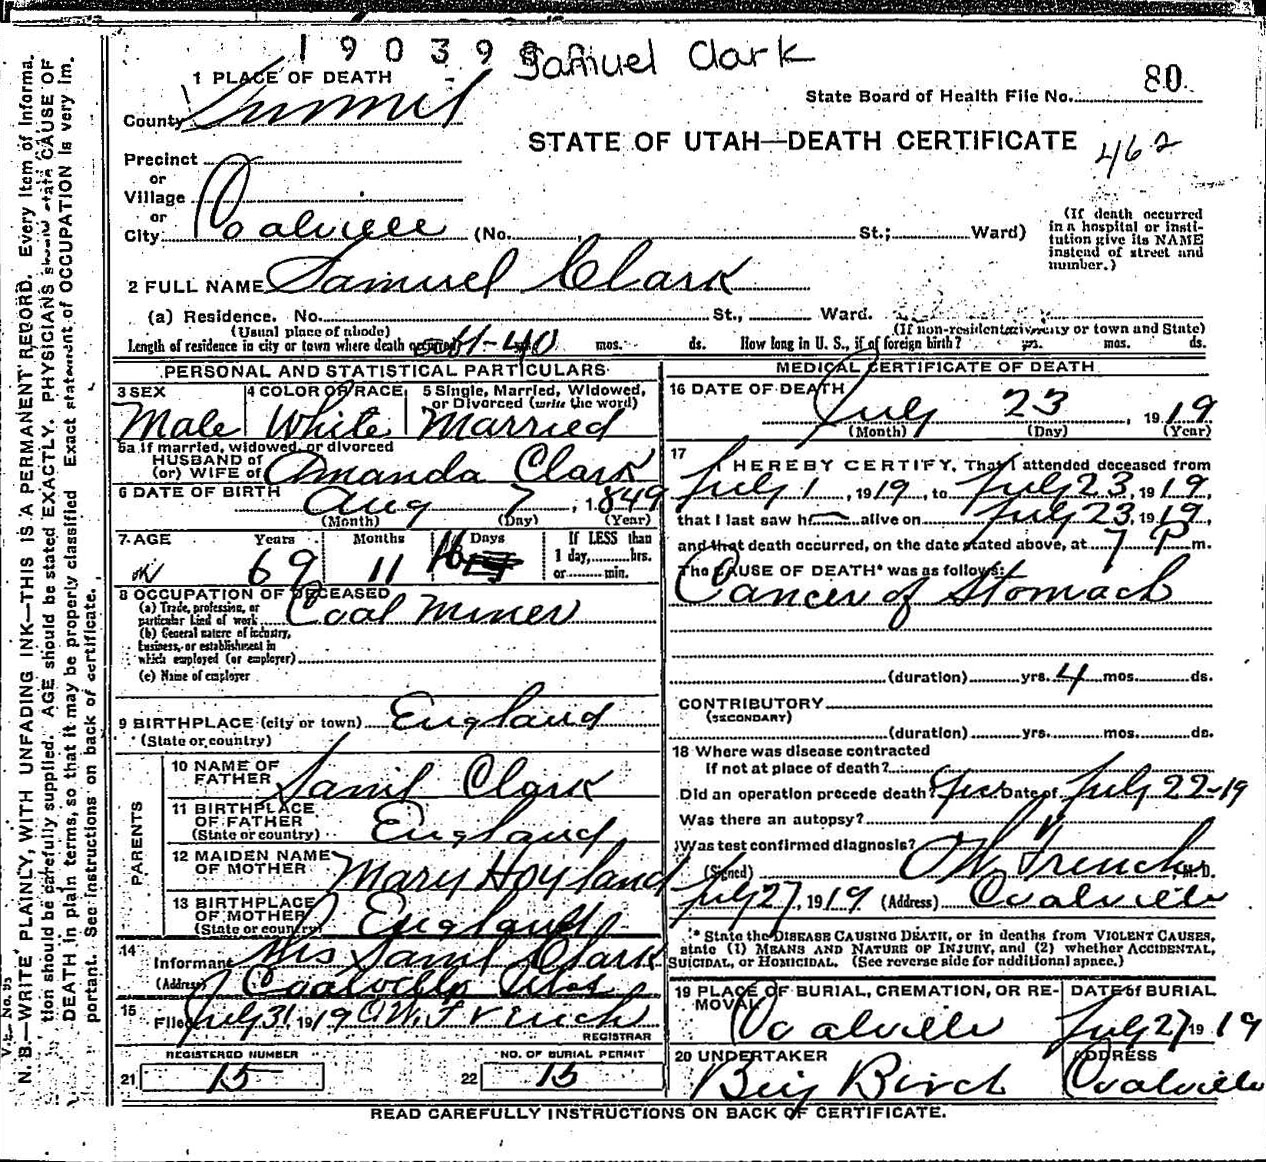 190398 Samuel Clark
1 PLACE OF DEATH
80
State Board of Health File No.
County Summit
STATE OF UTAH—DEATH CERTIFICATE
462
Precinct
or
Village
or
City Coalville (No. St.; Ward)
(If death occurred
in a hospital or insti-
tution give its NAME
instead of street and
number.)
2 FULL NAME Samuel Clark
(a) Residence. No. St., Ward.
(Usual place of abode) (If non-resident city or town and State)
Length of residence in city or town where death 40 mos. ds. How long in U. S., if of foreign birth? yrs. mos. ds.
PERSONAL AND STATISTICAL PARTICULARS
3 SEX
Male
4 COLOR OR RACE
White
5 Single, Married, Widowed,
or Divorced (write the word)
Married
5a If married, widowed, or divorced
HUSBAND of
(or) WIFE of Amanda Clark
6 DATE OF BIRTH Aug 7, 1849
(Month) (Day) (Year)
7. AGE Years Months Days If LESS than
1 day, hrs.
or min.
69 11 16
8 OCCUPATION OF DECEASED
(a) Trade, profession, or
particular kind of work Coal Miner
(b) General nature of industry,
business, or establishment in
which employed (or employer)
(c) Name of employer
9 BIRTHPLACE (city or town) England
(State or country)
PARENTS
10 NAME OF
FATHER Saml Clark
11 BIRTHPLACE
OF FATHER
(State or country) England
12 MAIDEN NAME
OF MOTHER Mary Hoyland
13 BIRTHPLACE
OF MOTHER
(State or country) England
14
Informant Mrs Saml Clark
(Address) Coalville Utah
15
Filed July 31, 1919 O.W. French
REGISTRAR
REGISTERED NUMBER
21 15
NO. OF BURIAL PERMIT
22 15
MEDICAL CERTIFICATE OF DEATH
16 DATE OF DEATH
July 23, 1919
(Month) (Day) (Year)
17
I HEREBY CERTIFY, That I attended deceased from
July 1, 1919, to July 23, 1919,
that I last saw h alive on July 23, 1919,
and that death occurred, on the date stated above, at 7 P m.
The CAUSE OF DEATH* was as follows:
Cancer of Stomach
(duration) yrs. 4 mos. ds.
CONTRIBUTORY
(SECONDARY)
(duration) yrs. mos. ds.
18 Where was disease contracted
If not at place of death?
Did an operation precede death? Yes Date of July 22-19
Was there an autopsy?
Was test confirmed diagnosis?
(Signed) O W French, M.D.
July 27, 1919 (Address) Coalville
* State the DISEASE CAUSING DEATH, or in deaths from VIOLENT CAUSES,
state (1) MEANS AND NATURE OF INJURY, and (2) whether ACCIDENTAL,
SUICIDAL, or HOMICIDAL. (See reverse side for additional space.)
19 PLACE OF BURIAL, CREMATION, OR RE-
MOVAL Coalville
DATE of BURIAL
July 27 1919
20 UNDERTAKER
Benj Birch
ADDRESS
Coalville
READ CAREFULLY INSTRUCTIONS ON BACK OF CERTIFICATE.
N. B.—WRITE PLAINLY, WITH UNFADING INK—THIS IS A PERMANENT RECORD. Every item of informa-
tion should be carefully supplied. AGE should be stated EXACTLY. PHYSICIANS should state CAUSE OF
DEATH in plain terms, so that it may be properly classified. Exact statement of OCCUPATION is very im-
portant. See instructions on back of certificate.